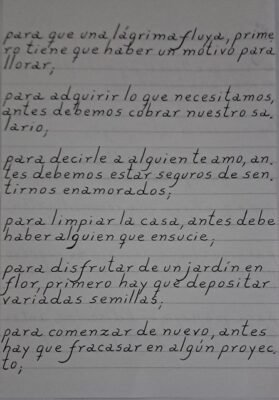 para que una lágrima fluya, prime
ro tiene que haber un motivo para
llorar;
para adquirir lo que necesitamos,
antes debemos cobrar nuestro sa-
lario;
para decirle a alguien te amo, an-
tes debemos estar seguros de sen-
tirnos enamorados;
para limpiar la casa, antes debe
haber alguien que ensucie;
para disfrutar de un jardín en
flor, primero hay que depositar
variadas semillas;
para comenzar de nuevo, antes
hay que fracasar en algún proyec-
to;